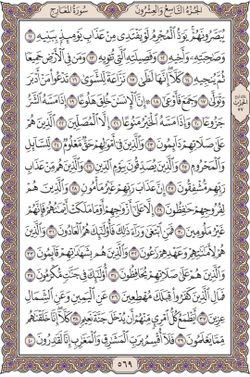 الجُزْءُ التَّاسِعُ وَالعِشْرُونَ سُورَةُ المَعَارِجِ
يُبَصَّرُونَهُمْۚ يَوَدُّ ٱلْمُجْرِمُ لَوْ يَفْتَدِى مِنْ عَذَابِ يَوْمِئِذٍۭ بِبَنِيهِ ١١
وَصَٰحِبَتِهِۦ وَأَخِيهِ ١٢ وَفَصِيلَتِهِ ٱلَّتِى تُـْٔوِيهِ ١٣ وَمَن فِى ٱلْأَرْضِ جَمِيعًا
ثُمَّ يُنجِيهِ ١٤ كَلَّآۖ إِنَّهَا لَظَىٰ ١٥ نَزَّاعَةً لِّلشَّوَىٰ ١٦ تَدْعُوا۟ مَنْ أَدْبَرَ
وَتَوَلَّىٰ ١٧ وَجَمَعَ فَأَوْعَىٰٓ ١٨ ۞ إِنَّ ٱلْإِنسَٰنَ خُلِقَ هَلُوعًا ١٩ إِذَا مَسَّهُ ٱلشَّرُّ
جَزُوعًا ٢٠ وَإِذَا مَسَّهُ ٱلْخَيْرُ مَنُوعًا ٢١ إِلَّا ٱلْمُصَلِّينَ ٢٢ ٱلَّذِينَ هُمْ
عَلَىٰ صَلَاتِهِمْ دَآئِمُونَ ٢٣ وَٱلَّذِينَ فِىٓ أَمْوَٰلِهِمْ حَقٌّ مَّعْلُومٌ ٢٤ لِّلسَّآئِلِ
وَٱلْمَحْرُومِ ٢٥ وَٱلَّذِينَ يُصَدِّقُونَ بِيَوْمِ ٱلدِّينِ ٢٦ وَٱلَّذِينَ هُم مِّنْ عَذَابِ
رَبِّهِم مُّشْفِقُونَ ٢٧ إِنَّ عَذَابَ رَبِّهِمْ غَيْرُ مَأْمُونٍ ٢٨ وَٱلَّذِينَ هُمْ
لِفُرُوجِهِمْ حَٰفِظُونَ ٢٩ إِلَّا عَلَىٰٓ أَزْوَٰجِهِمْ أَوْ مَا مَلَكَتْ أَيْمَٰنُهُمْ فَإِنَّهُمْ
غَيْرُ مَلُومِينَ ٣٠ فَمَنِ ٱبْتَغَىٰ وَرَآءَ ذَٰلِكَ فَأُو۟لَٰٓئِكَ هُمُ ٱلْعَادُونَ ٣١ وَٱلَّذِينَ
هُمْ لِأَمَٰنَٰتِهِمْ وَعَهْدِهِمْ رَٰعُونَ ٣٢ وَٱلَّذِينَ هُم بِشَهَٰدَٰتِهِمْ قَآئِمُونَ ٣٣
وَٱلَّذِينَ هُمْ عَلَىٰ صَلَاتِهِمْ يُحَافِظُونَ ٣٤ أُو۟لَٰٓئِكَ فِى جَنَّٰتٍ مُّكْرَمُونَ ٣٥
فَمَالِ ٱلَّذِينَ كَفَرُوا۟ قِبَلَكَ مُهْطِعِينَ ٣٦ عَنِ ٱلْيَمِينِ وَعَنِ ٱلشِّمَالِ
عِزِينَ ٣٧ أَيَطْمَعُ كُلُّ ٱمْرِئٍ مِّنْهُمْ أَن يُدْخَلَ جَنَّةَ نَعِيمٍ ٣٨ كَلَّآۖ إِنَّا خَلَقْنَٰهُم
مِّمَّا يَعْلَمُونَ ٣٩ فَلَآ أُقْسِمُ بِرَبِّ ٱلْمَشَٰرِقِ وَٱلْمَغَٰرِبِ إِنَّا لَقَٰدِرُونَ ٤٠
٥٦٩